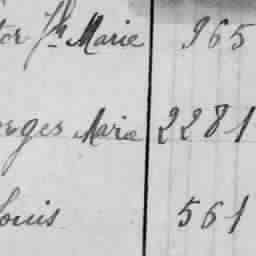 tor Jh Marie 965
orges Marie 2281
Louis 561